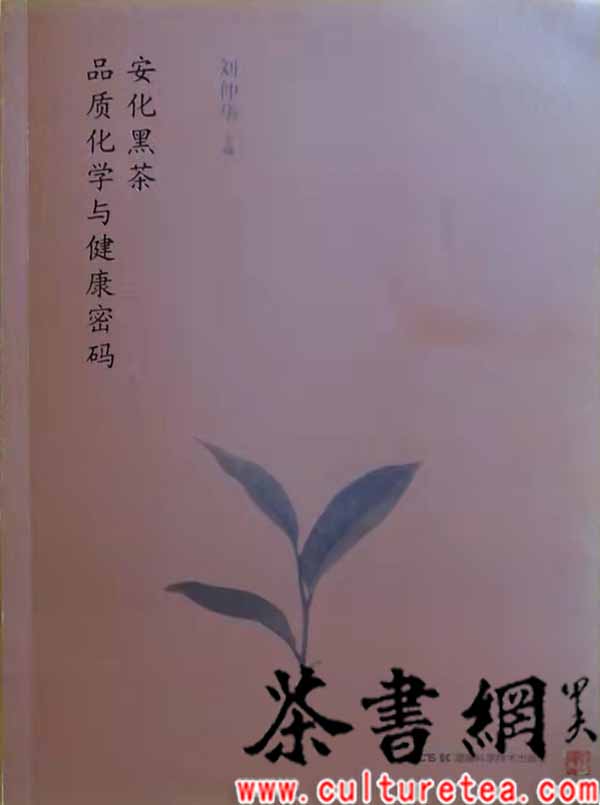 安化黑茶
品质化学与健康密码
刘仲华 主编
茶書網
www.culturetea.com